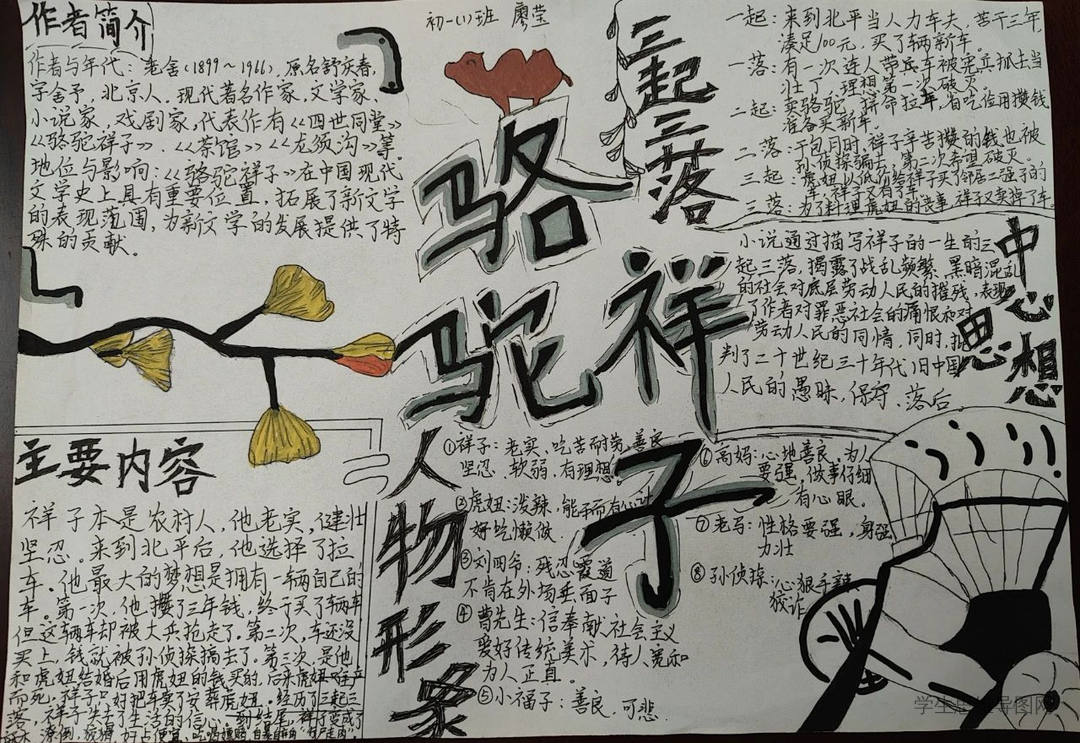 作者简介
作者与年代：老舍(1899～1966)，原名舒庆春，
字舍予，北京人。现代著名作家，文学家、
小说家，戏剧家，代表作有《四世同堂》
《骆驼祥子》、《茶馆》《龙须沟》等。
地位与影响：《骆驼祥子》在中国现代
文学史上具有重要位置，拓展了新文学
的表现范围，为新文学的发展提供了特
殊的贡献。
初一(1)班 廖莹
骆驼祥子
三起三落
一起：来到北平当人力车夫，苦干三年，
凑足100元，买了辆新车。
一落：有一次连人带车被宪兵抓去当
壮丁，理想第一次破灭。
二起：卖骆驼，拼命拉车，省吃俭用攒钱
准备买新车。
二落：干包月时，祥子辛苦攒的钱也被
孙侦探骗去，第二次希望破灭。
三起：虎妞以低价给祥子买了邻居二强子的
车，祥子又有了车。
三落：为了料理虎妞的丧事，祥子又卖掉了车。
中心思想
小说通过描写祥子的一生的三
起三落，揭露了战乱频繁、黑暗混乱
的社会对底层劳动人民的摧残，表现
了作者对罪恶社会的痛恨和对
劳动人民的同情，同时，批
判了二十世纪三十年代旧中国
人民的愚昧，保守，落后
主要内容
祥子本是农村人，他老实，健壮
坚忍。来到北平后，他选择了拉
车，他最大的梦想是拥有一辆自己的
车。第一次，他攒了三年钱，终于买了辆车
但这辆车却被大兵抢走了，第二次，车还没
买上，钱就被孙侦探搞去了，第三次，是他
和虎妞结婚后用虎妞的钱买的，后来虎妞难产
而死，祥子只好把车卖了安葬虎妞。经历了三起三
落，祥子失去了生活的信心。到结尾，祥子变成了
人物形象
①祥子：老实、吃苦耐劳，善良
坚忍、软弱，有理想
②虎妞：泼辣，能干而有心计
好吃懒做
③刘四爷：残忍霸道
不肯在外场丢面子
④曹先生：信奉献社会主义
爱好传统美术，待人宽和
为人正直。
⑤小福子：善良，可悲
⑥高妈：心地善良，为人
要强，做事仔细
有心眼。
⑦老马：性格要强，身强
力壮
⑧孙侦探：心狠手辣
狡诈